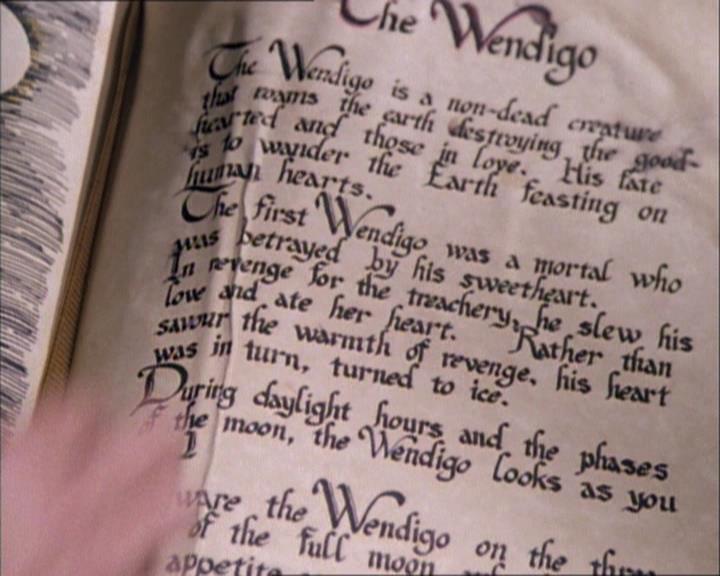 The Wendigo
The Wendigo is a non-dead creature
that roams the earth destroying the good-
hearted and those in love. His fate
is to wander the Earth feasting on
human hearts.
The first Wendigo was a mortal who
was betrayed by his sweetheart.
In revenge for the treachery, he slew his
love and ate her heart. Rather than
savour the warmth of revenge, his heart
was in turn, turned to ice.
During daylight hours and the phases
of the moon, the Wendigo looks as you
I
ware the Wendigo on the
of the full moon
appetite